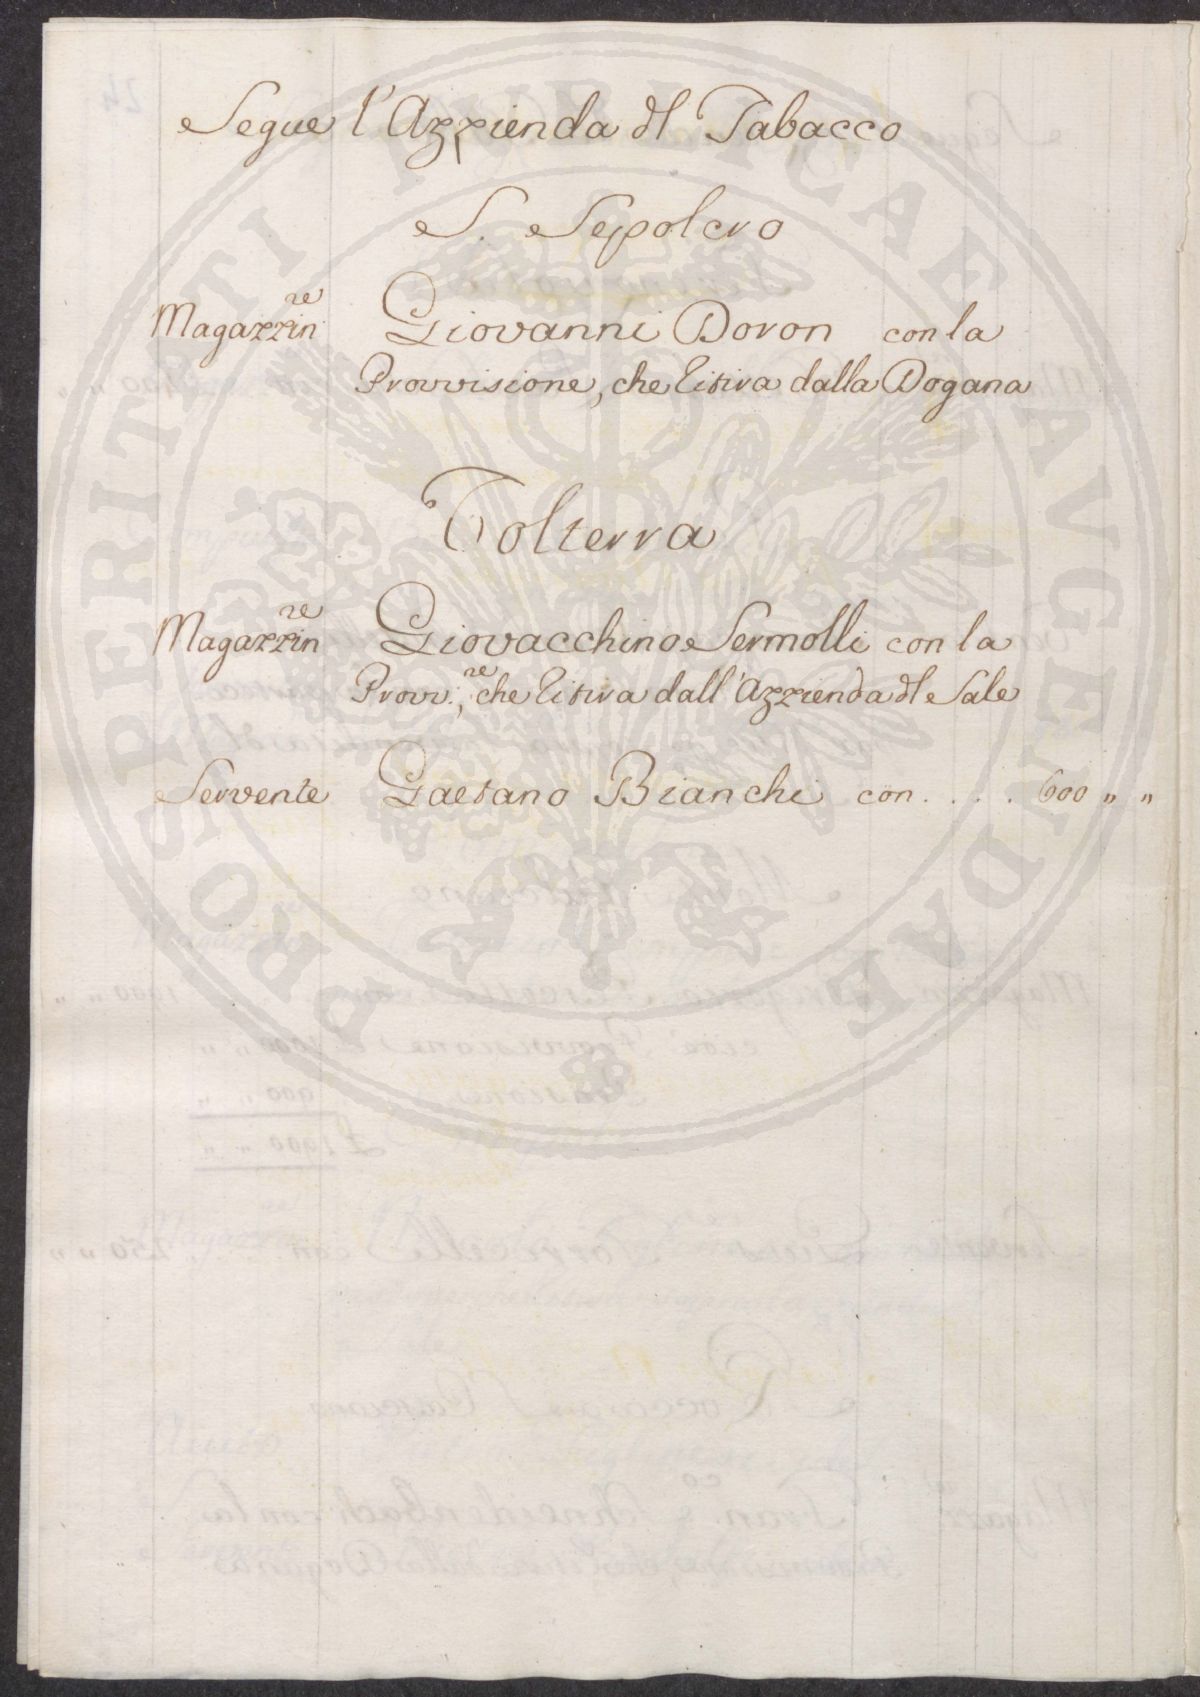 Segue l'Azzienda dl Tabacco
S. Sepolcro
Magazzin.re Giovanni Doron con la
Provvisione, che tira dalla Dogana
Volterra
Magazzin.re Giovacchino Sermolli con la
Provv.ne, che tira dall'Azzienda dl Sale
Servente Gaetano Bianchi con . . . . 600 „ „
PROSPERITATI PVBLICAE AVGENDAE